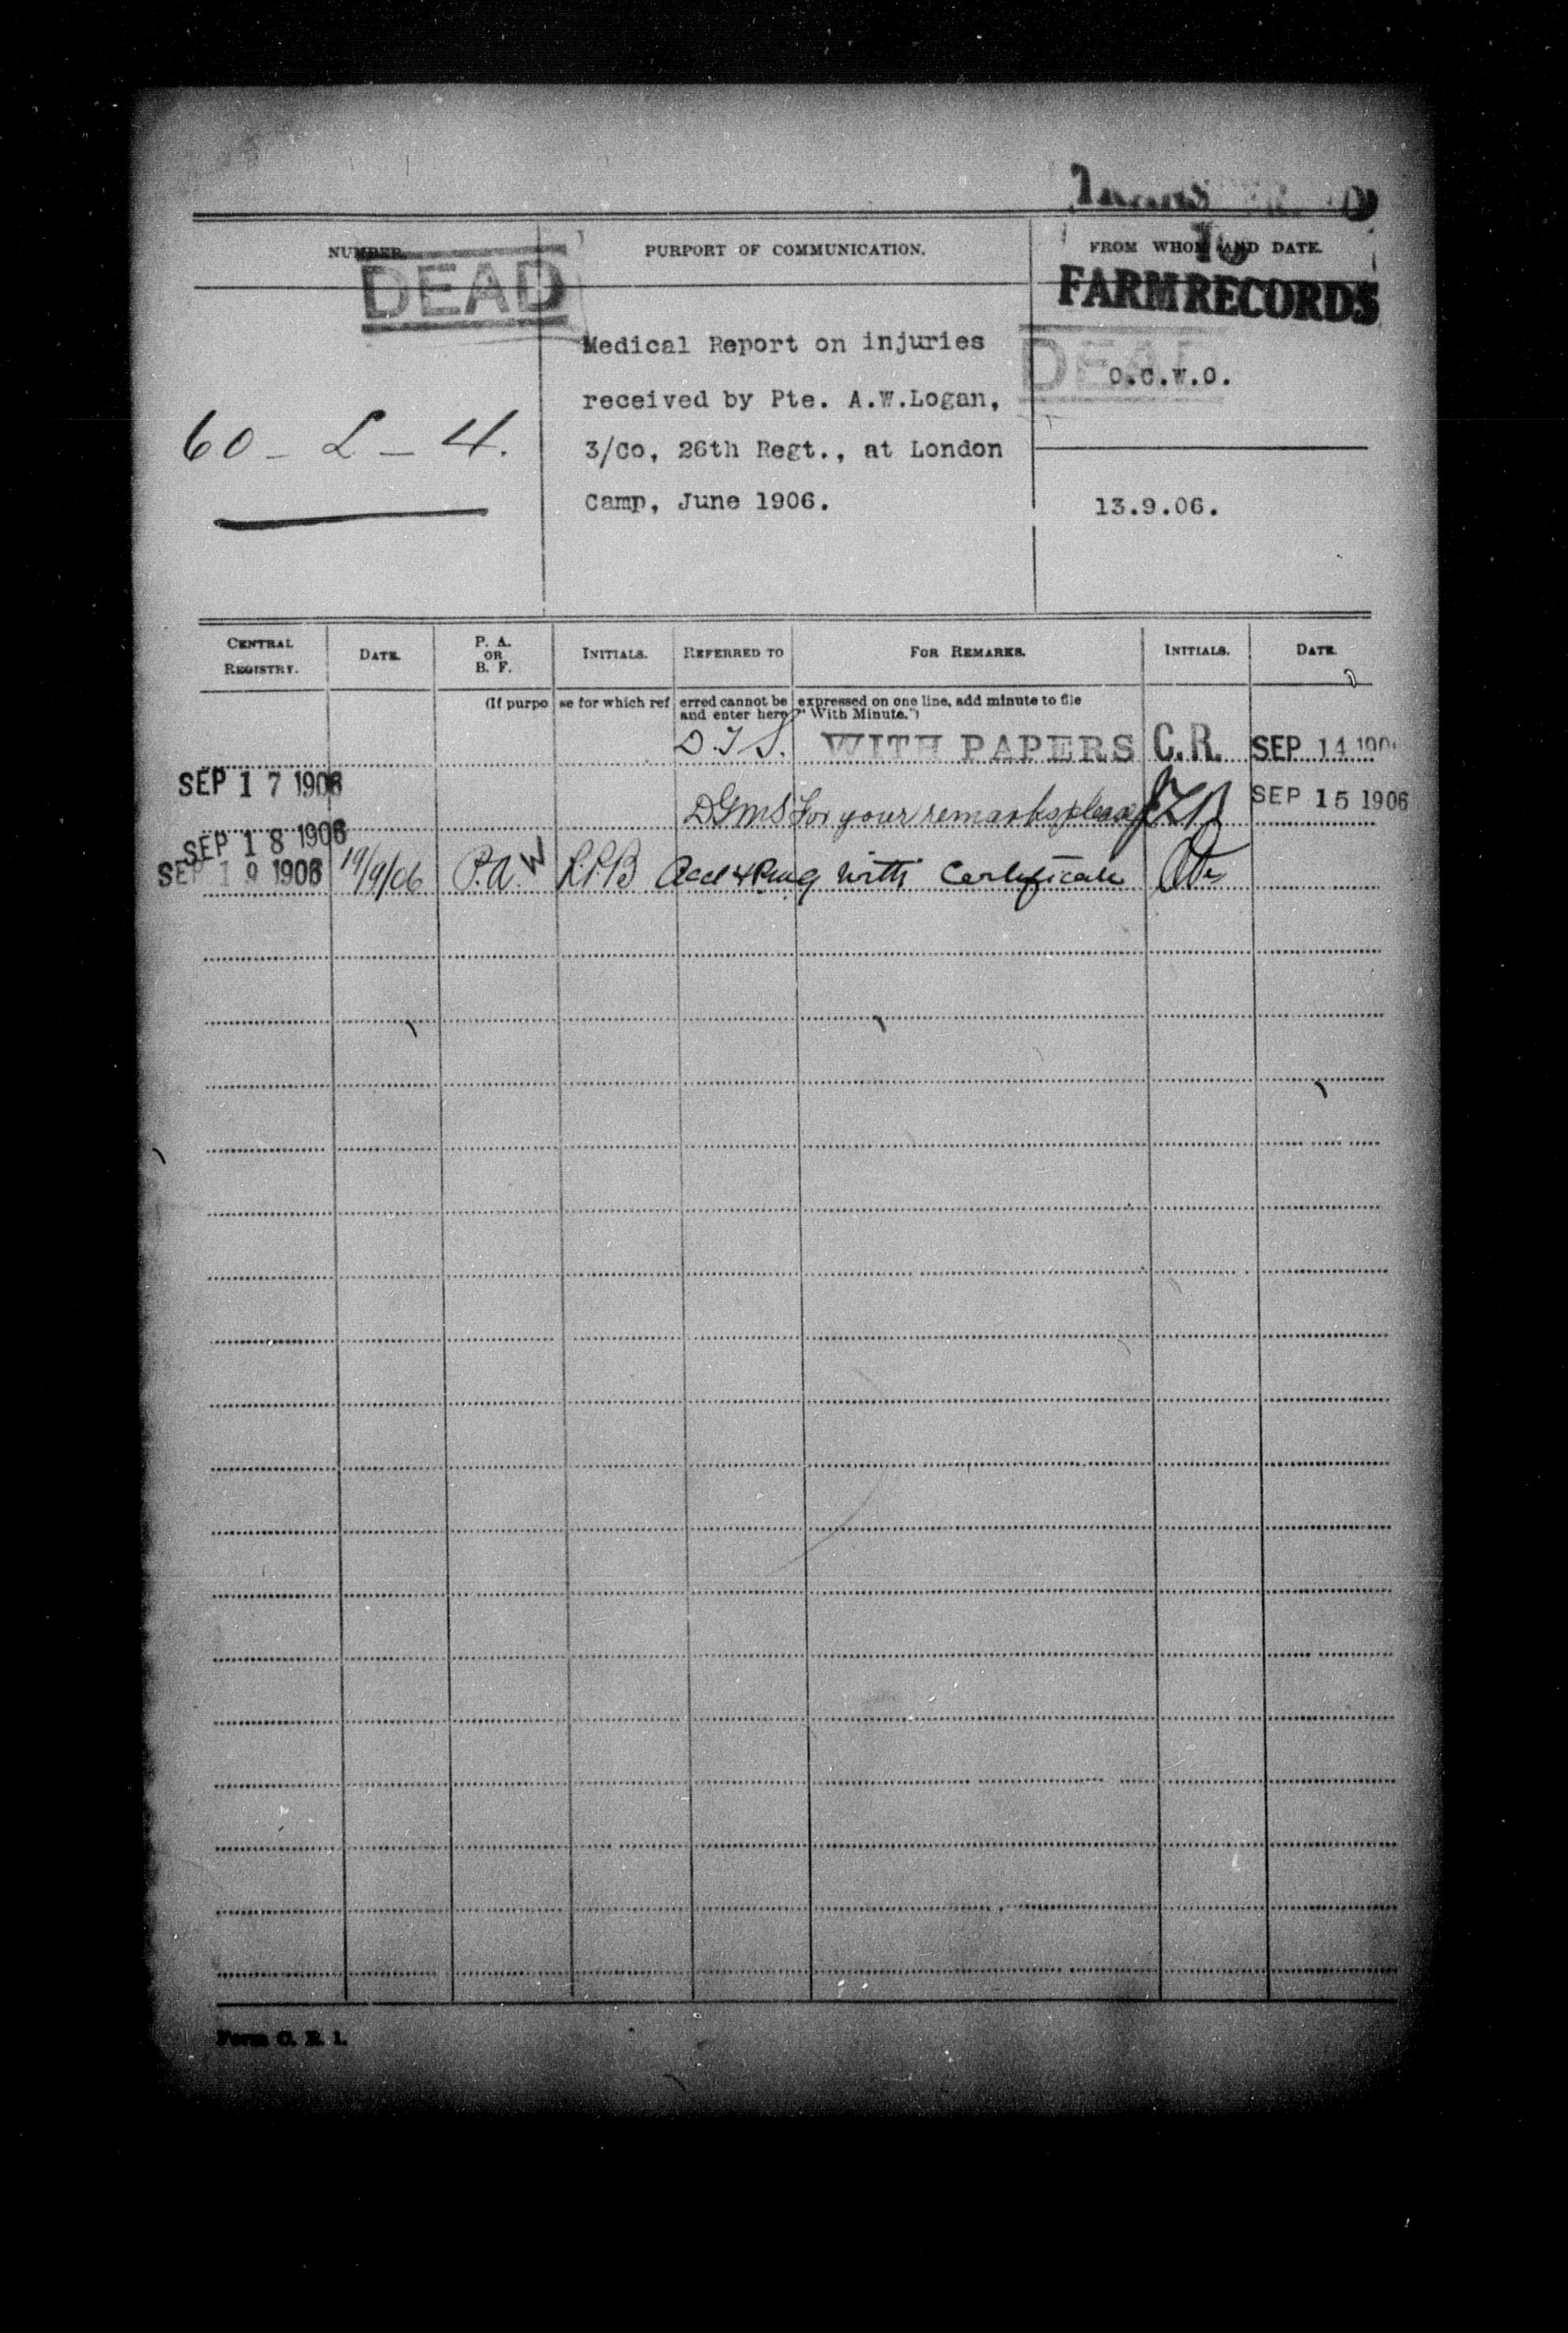 NUMBER.
PURPORT OF COMMUNICATION.
FROM WHOM AND DATE.
DEAD
FARM RECORDS
DEAD
Medical Report on injuries
received by Pte. A.W.Logan,
3/Co, 26th Regt., at London
Camp, June 1906.
60 - L - 4.
O.C.W.O.
13.9.06.
CENTRAL REGISTRY.
DATE.
P. A. OR B. F.
INITIALS.
REFERRED TO
FOR REMARKS.
INITIALS.
DATE.
(If purpose for which referred cannot be expressed on one line, add minute to file
and enter here "With Minute.")
D.T.S. WITH PAPERS C.R. SEP 14 190
SEP 17 1906
DGMS For your remarks please SEP 15 1906
SEP 18 1906
SEP 19 1906 19/9/06 P.A. with Certificate
Form C. R. 1.